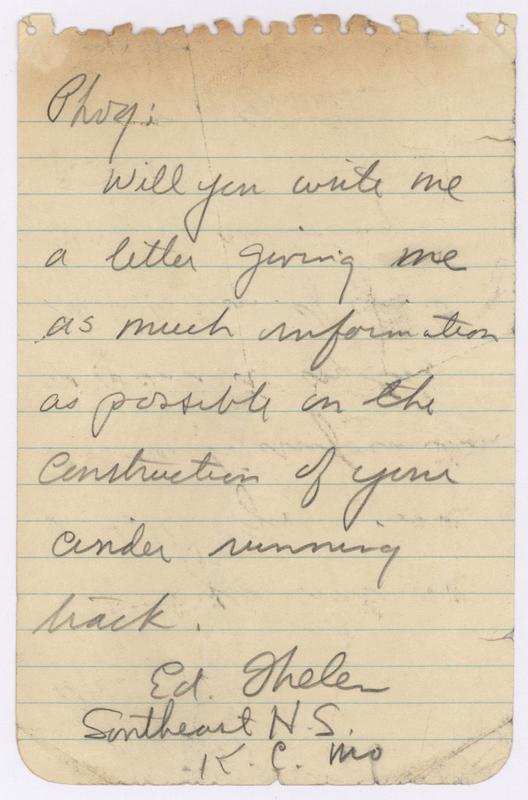 Phog:
Will you write me
a letter giving me
as much information
as possible on the
construction of your
cinder running
track.
Ed. Thelen
Southeast H.S.
K. C. Mo